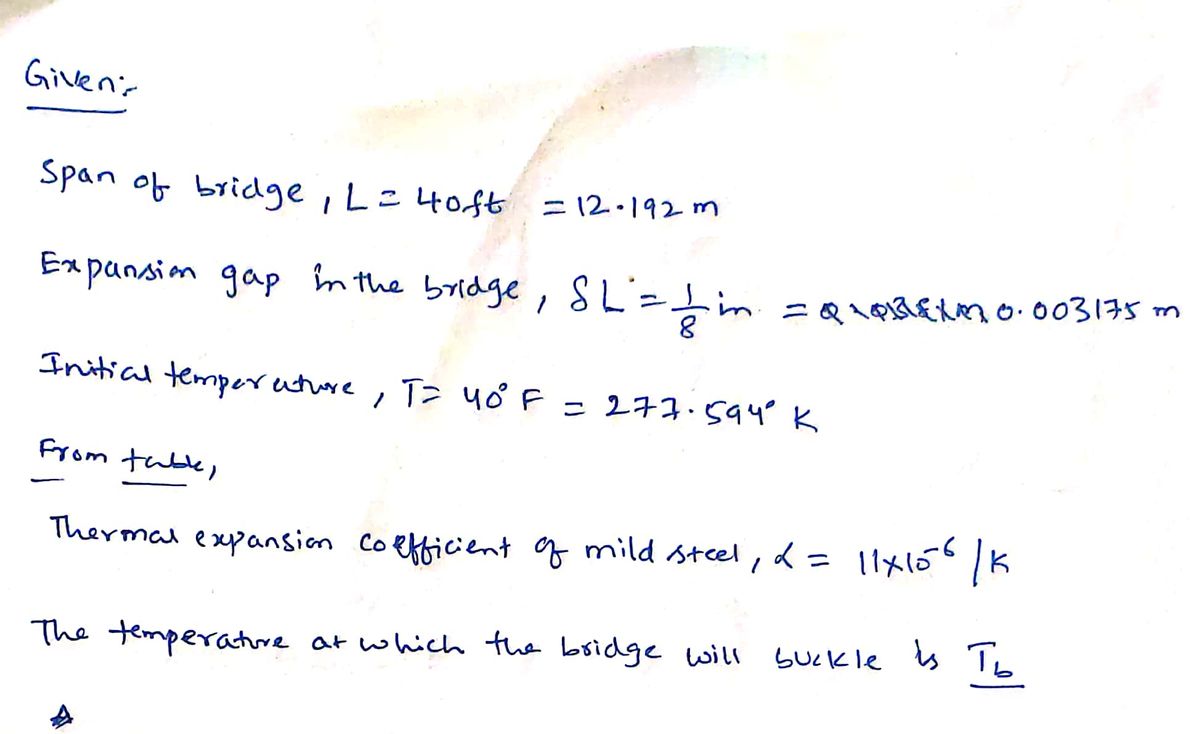 Given:-
Span of bridge, L = 40ft = 12.192 m
Expansion gap in the bridge, δL = 1/8 in = 0.003175 m
Initial temperature, T = 40° F = 277.594° K
From table,
Thermal expansion coefficient of mild steel, α = 11×10⁻⁶ /K
The temperature at which the bridge will buckle is T_b